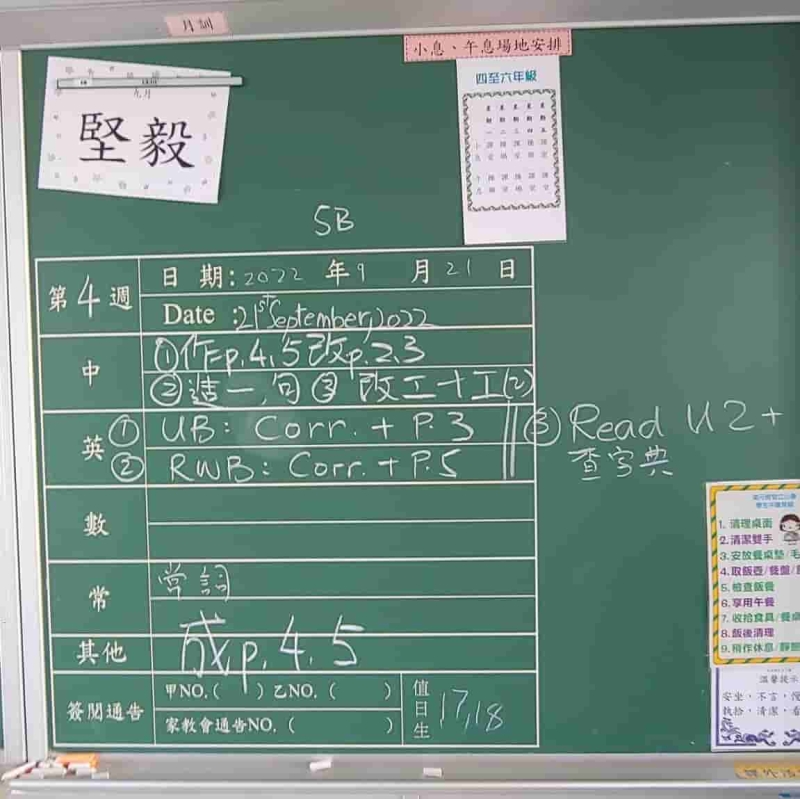 月訓
小息、午息場地安排
九月
堅毅
四至六年級
5B
第4週
日期:2022年9月21日
Date:21st September, 2022
中
①作p.4,5改p.2,3
②造一句③改工十工(2)
英
①UB: Corr. + P.3
②RWB: Corr. + P.5
③Read U2+
查字典
數
常
常詞
其他
成p.4.5
簽閱通告
甲NO.( )乙NO.( )
家教會通告NO.( )
值日生
17,18
1. 清理桌面
2. 清潔雙手
3. 安放餐桌墊/毛
4. 取飯壺/餐盤/
5. 檢查飯餐
6. 享用午餐
7. 收拾食具/餐桌
8. 飯後清理
9. 稍作休息/靜
溫馨提示
安坐,不言,
執拾,清潔,